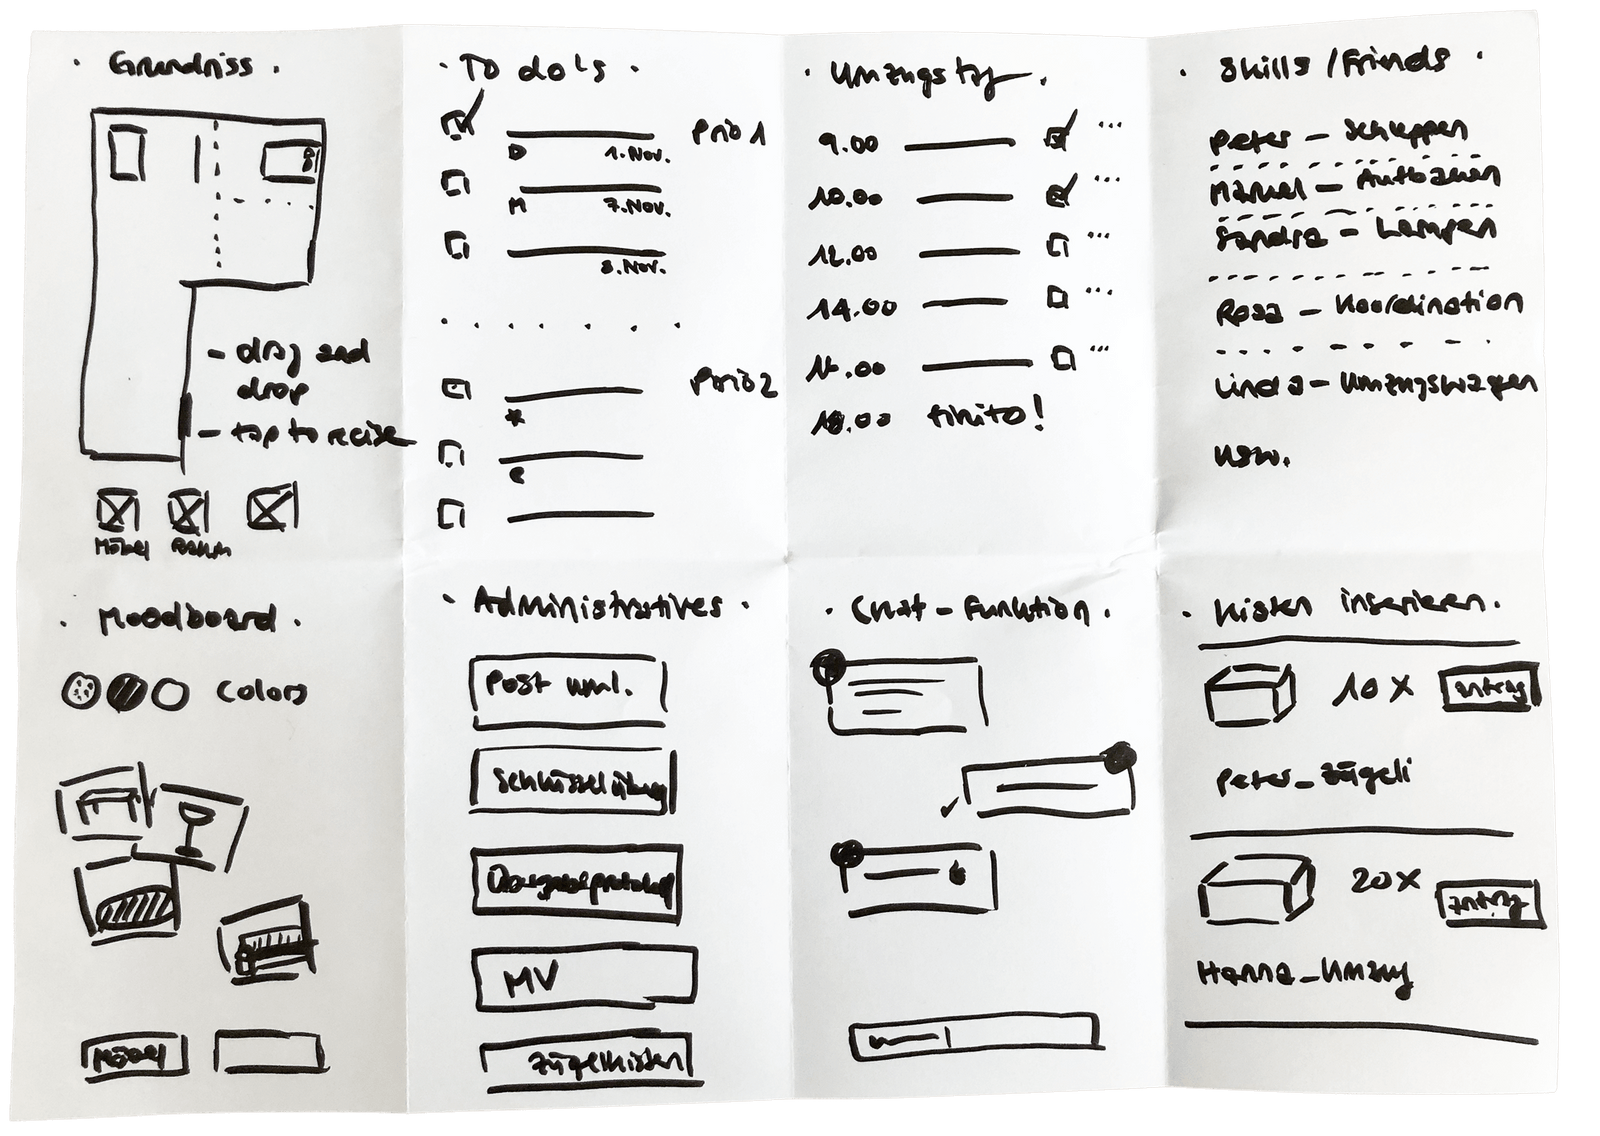 · Grundriss ·
- drag and
drop
- tap to resize
Möbel Raum
· To do's ·
Prio 1
D 1. Nov.
M 7. Nov.
8. Nov.
Prio 2
· Umzugstag ·
9.00 ...
10.00 ...
12.00 ...
14.00 ...
...
18.00 finito!
· Skills / Friends ·
Peter - Schleppen
Manuel - Aufbauen
Sandra - Lampen
Rosa - Koordination
Linda - Umzugswagen
usw.
· Moodboard ·
Colors
Möbel
· Administratives ·
Post uml.
Schlüsselübg
Übergabeprotokoll
MV
Zügelkisten
· Chat - Funktion ·
· Kisten inserieren ·
10 x Antrag
Peter_Zügeli
20 x Antrag
Hanna_Umzug